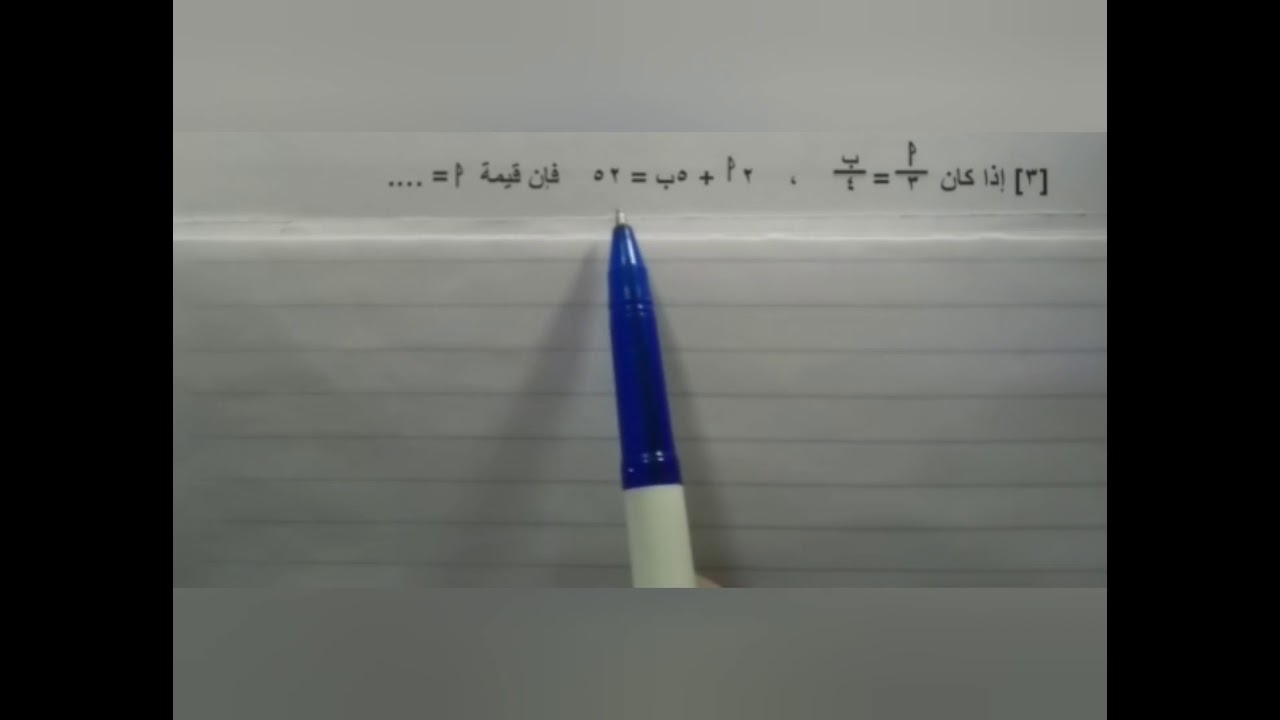 [٣] إذا كان أ/٣ = ب/٤ ، ٢أ + ٥ب = ٥٢ فإن قيمة أ = ....